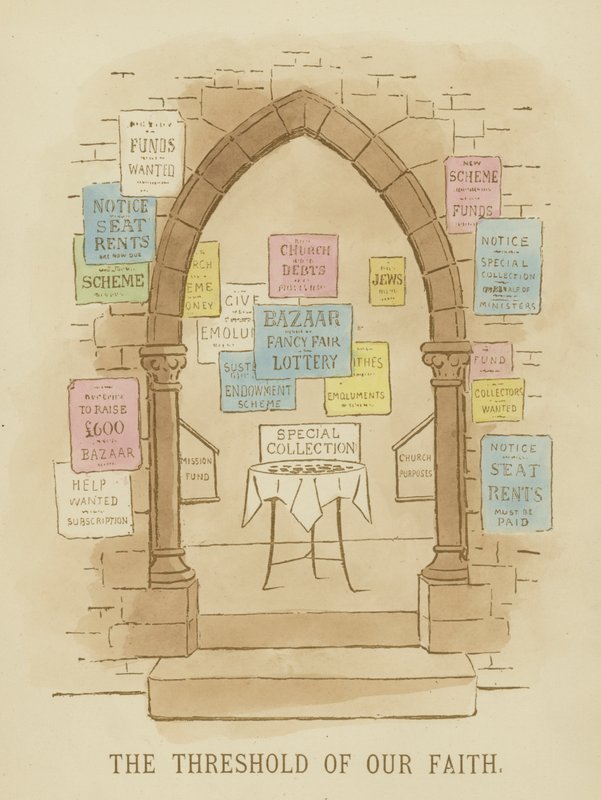 FUNDS
WANTED
NOTICE
SEAT
RENTS
ARE NOW DUE
SCHEME
TO RAISE
£600
BAZAAR
HELP
WANTED
SUBSCRIPTION
GIVE
CHURCH
DEBTS
JEWS
BAZAAR
FANCY FAIR
LOTTERY
ENDOWMENT
SCHEME
EMOLUMENTS
SPECIAL
COLLECTION
MISSION
FUND
CHURCH
PURPOSES
NEW
SCHEME
FUNDS
NOTICE
SPECIAL
COLLECTION
ON BEHALF OF
MINISTERS
FUND
COLLECTORS
WANTED
NOTICE
SEAT
RENTS
MUST BE
PAID
THE THRESHOLD OF OUR FAITH.